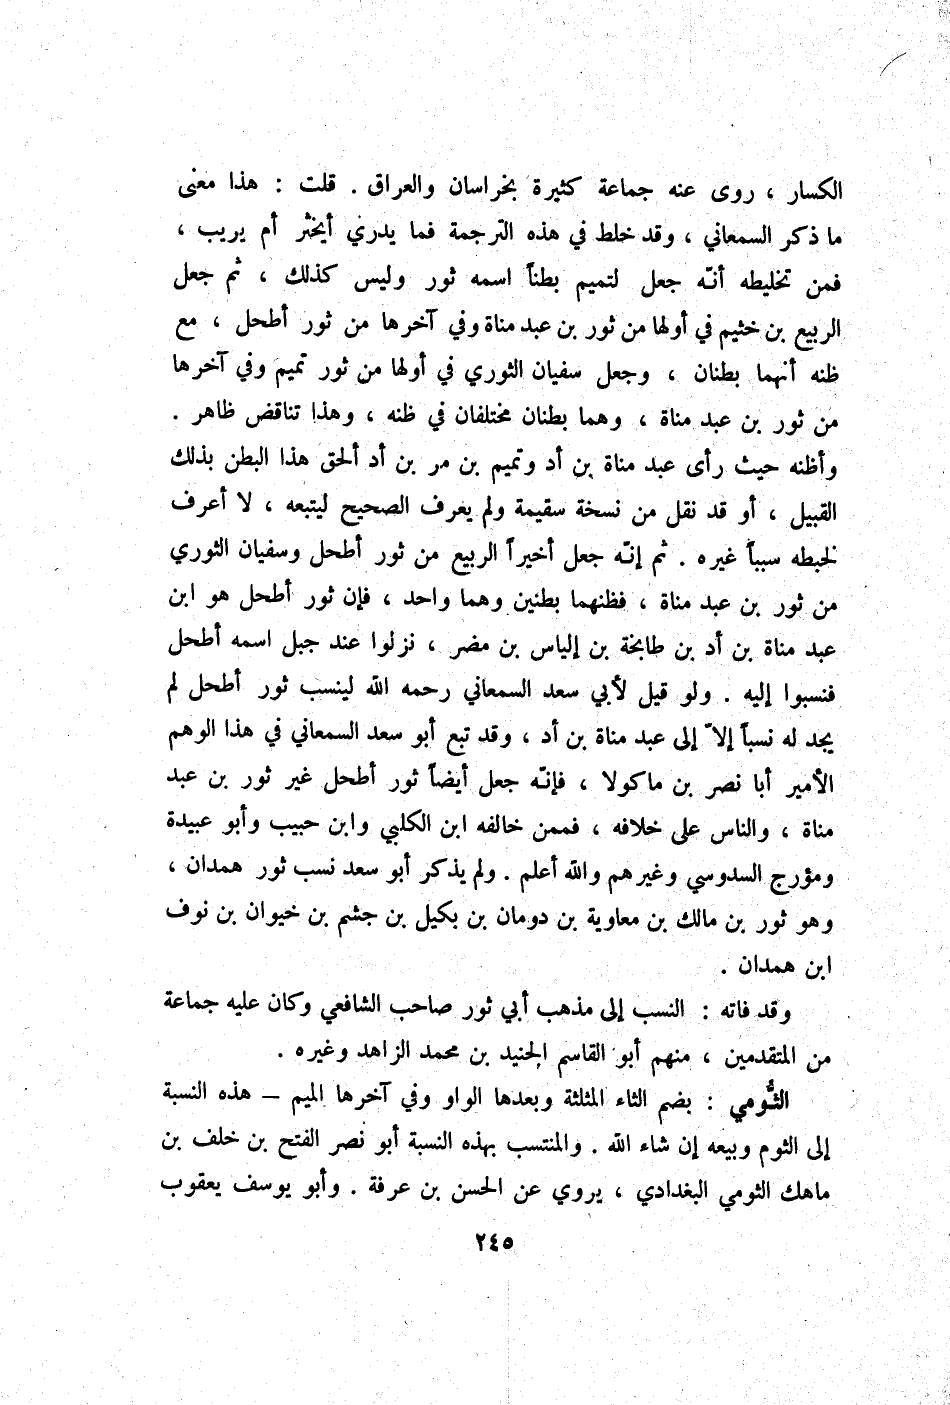 الكسار ، روى عنه جماعة كثيرة بخراسان والعراق . قلت : هذا معنى
ما ذكر السمعاني ، وقد خلط في هذه الترجمة فما يدري أيخثر أم يريب ،
فمن تخليطه أنّه جعل لتميم بطناً اسمه ثور وليس كذلك ، ثم جعل
الربيع بن خثيم في أولها من ثور بن عبد مناة وفي آخرها من ثور أطحل ، مع
ظنه أنهما بطنان ، وجعل سفيان الثوري في أولها من ثور تميم وفي آخرها
من ثور بن عبد مناة ، وهما بطنان مختلفان في ظنه ، وهذا تناقض ظاهر .
وأظنه حيث رأى عبد مناة بن أد وتميم بن مر بن أد ألحق هذا البطن بذلك
القبيل ، أو قد نقل من نسخة سقيمة ولم يعرف الصحيح ليتبعه ، لا أعرف
لخبطه سبباً غيره . ثم إنّه جعل أخيراً الربيع من ثور أطحل وسفيان الثوري
من ثور بن عبد مناة ، فظنهما بطنين وهما واحد ، فإن ثور أطحل هو ابن
عبد مناة بن أد بن طابخة بن إلياس بن مضر ، نزلوا عند جبل اسمه أطحل
فنسبوا إليه . ولو قيل لأبي سعد السمعاني رحمه الله لينسب ثور أطحل لم
يجد له نسباً إلاّ إلى عبد مناة بن أد ، وقد تبع أبو سعد السمعاني في هذا الوهم
الأمير أبا نصر بن ماكولا ، فإنّه جعل أيضاً ثور أطحل غير ثور بن عبد
مناة ، والناس على خلافه ، فممن خالفه ابن الكلبي وابن حبيب وأبو عبيدة
ومؤرج السدوسي وغيرهم والله أعلم . ولم يذكر أبو سعد نسب ثور همدان ،
وهو ثور بن مالك بن معاوية بن دومان بن بكيل بن جشم بن خيوان بن نوف
ابن همدان .
وقد فاته : النسب إلى مذهب أبي ثور صاحب الشافعي وكان عليه جماعة
من المتقدمين ، منهم أبو القاسم الجنيد بن محمد الزاهد وغيره .
الثُّومي : بضم الثاء المثلثة وبعدها الواو وفي آخرها الميم — هذه النسبة
إلى الثوم وبيعه إن شاء الله . والمنتسب بهذه النسبة أبو نصر الفتح بن خلف بن
ماهك الثومي البغدادي ، يروي عن الحسن بن عرفة . وأبو يوسف يعقوب
٢٤٥